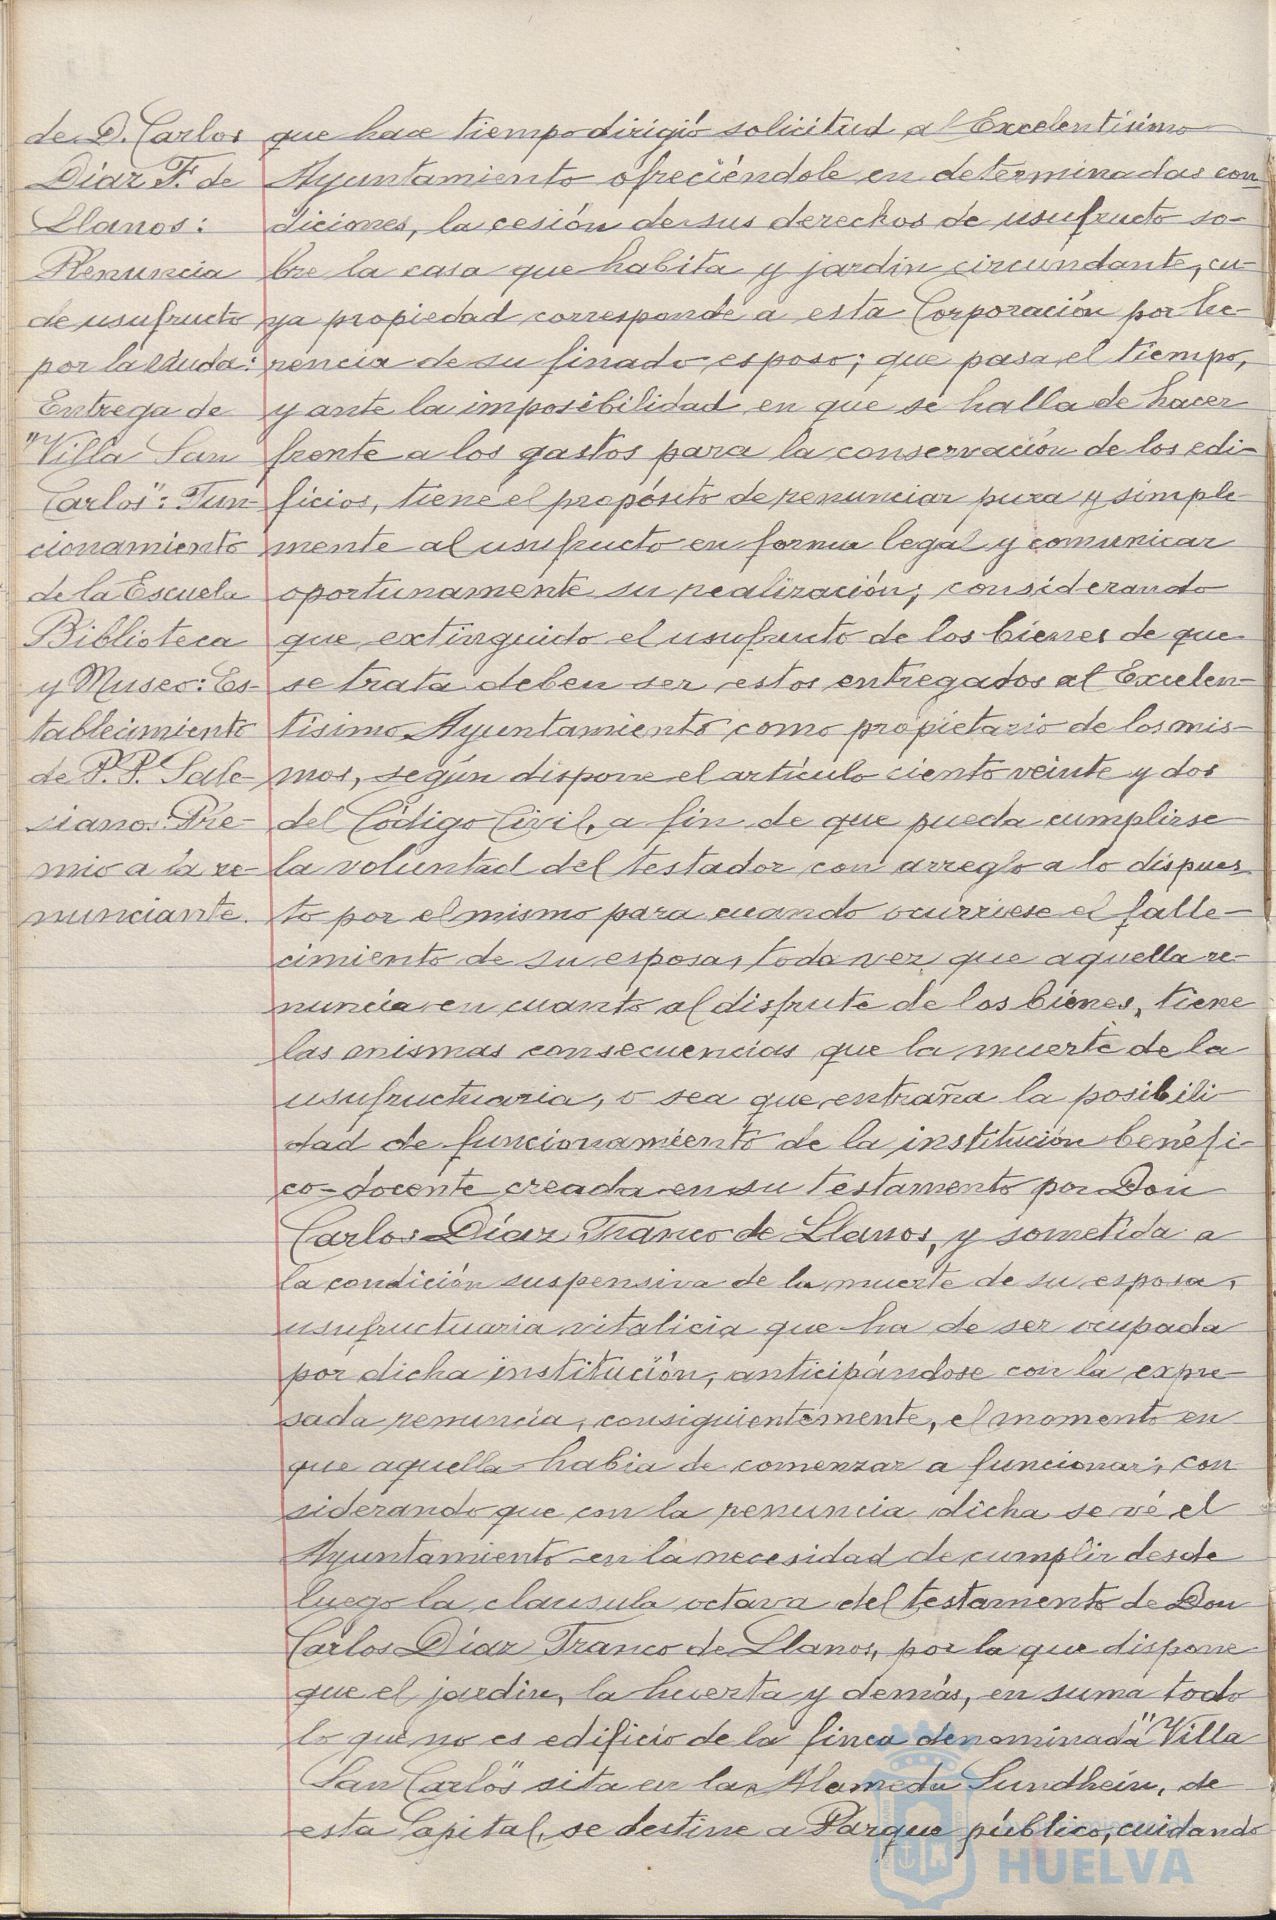 de D. Carlos
Díaz F. de
Llanos:
Renuncia
de usufructo
por la viuda:
Entrega de
"Villa San
Carlos": Fun-
cionamiento
de la Escuela
Biblioteca
y Museo: Es-
tablecimiento
de P.P. Sale-
sianos: Pre-
mio a la re-
nunciante.
que hace tiempo dirigió solicitud al Excelentísimo
Ayuntamiento ofreciéndole en determinadas con-
diciones, la cesión de sus derechos de usufructo so-
bre la casa que habita y jardin circundante, cu-
ya propiedad corresponde a esta Corporación por he-
rencia de su finado esposo; que pasa el tiempo,
y ante la imposibilidad en que se halla de hacer
frente a los gastos para la conservación de los edi-
ficios, tiene el propósito de renunciar pura y simple-
mente al usufructo en forma legal y comunicar
oportunamente su realización; considerando
que extinguido el usufructo de los bienes de que
se trata deben ser estos entregados al Excelen-
tísimo Ayuntamiento como propietario de los mis-
mos, según dispone el artículo ciento veinte y dos
del Código Civil, a fin de que pueda cumplirse
la voluntad del testador con arreglo a lo dispues-
to por el mismo para cuando ocurriese el falle-
cimiento de su esposa, toda vez que aquella re-
nuncia en cuanto al disfrute de los bienes, tiene
las mismas consecuencias que la muerte de la
usufructuaria, o sea que entraña la posibili-
dad de funcionamiento de la institución benéfi-
co-docente creada en su testamento por Don
Carlos Díaz Franco de Llanos, y sometida a
la condición suspensiva de la muerte de su esposa,
usufructuaria vitalicia que ha de ser ocupada
por dicha institución, anticipándose con la expre-
sada renuncia, consiguientemente, el momento en
que aquella habia de comenzar a funcionar; con-
siderando que con la renuncia dicha se vé el
Ayuntamiento en la necesidad de cumplir desde
luego la clausula octava del testamento de Don
Carlos Díaz Franco de Llanos, por la que dispone
que el jardin, la huerta y demás, en suma todo
lo que no es edificio de la finca denominada "Villa
San Carlos" sita en la Alameda Sundhein, de
esta Capital, se destine a Parque público, cuidando
HUELVA